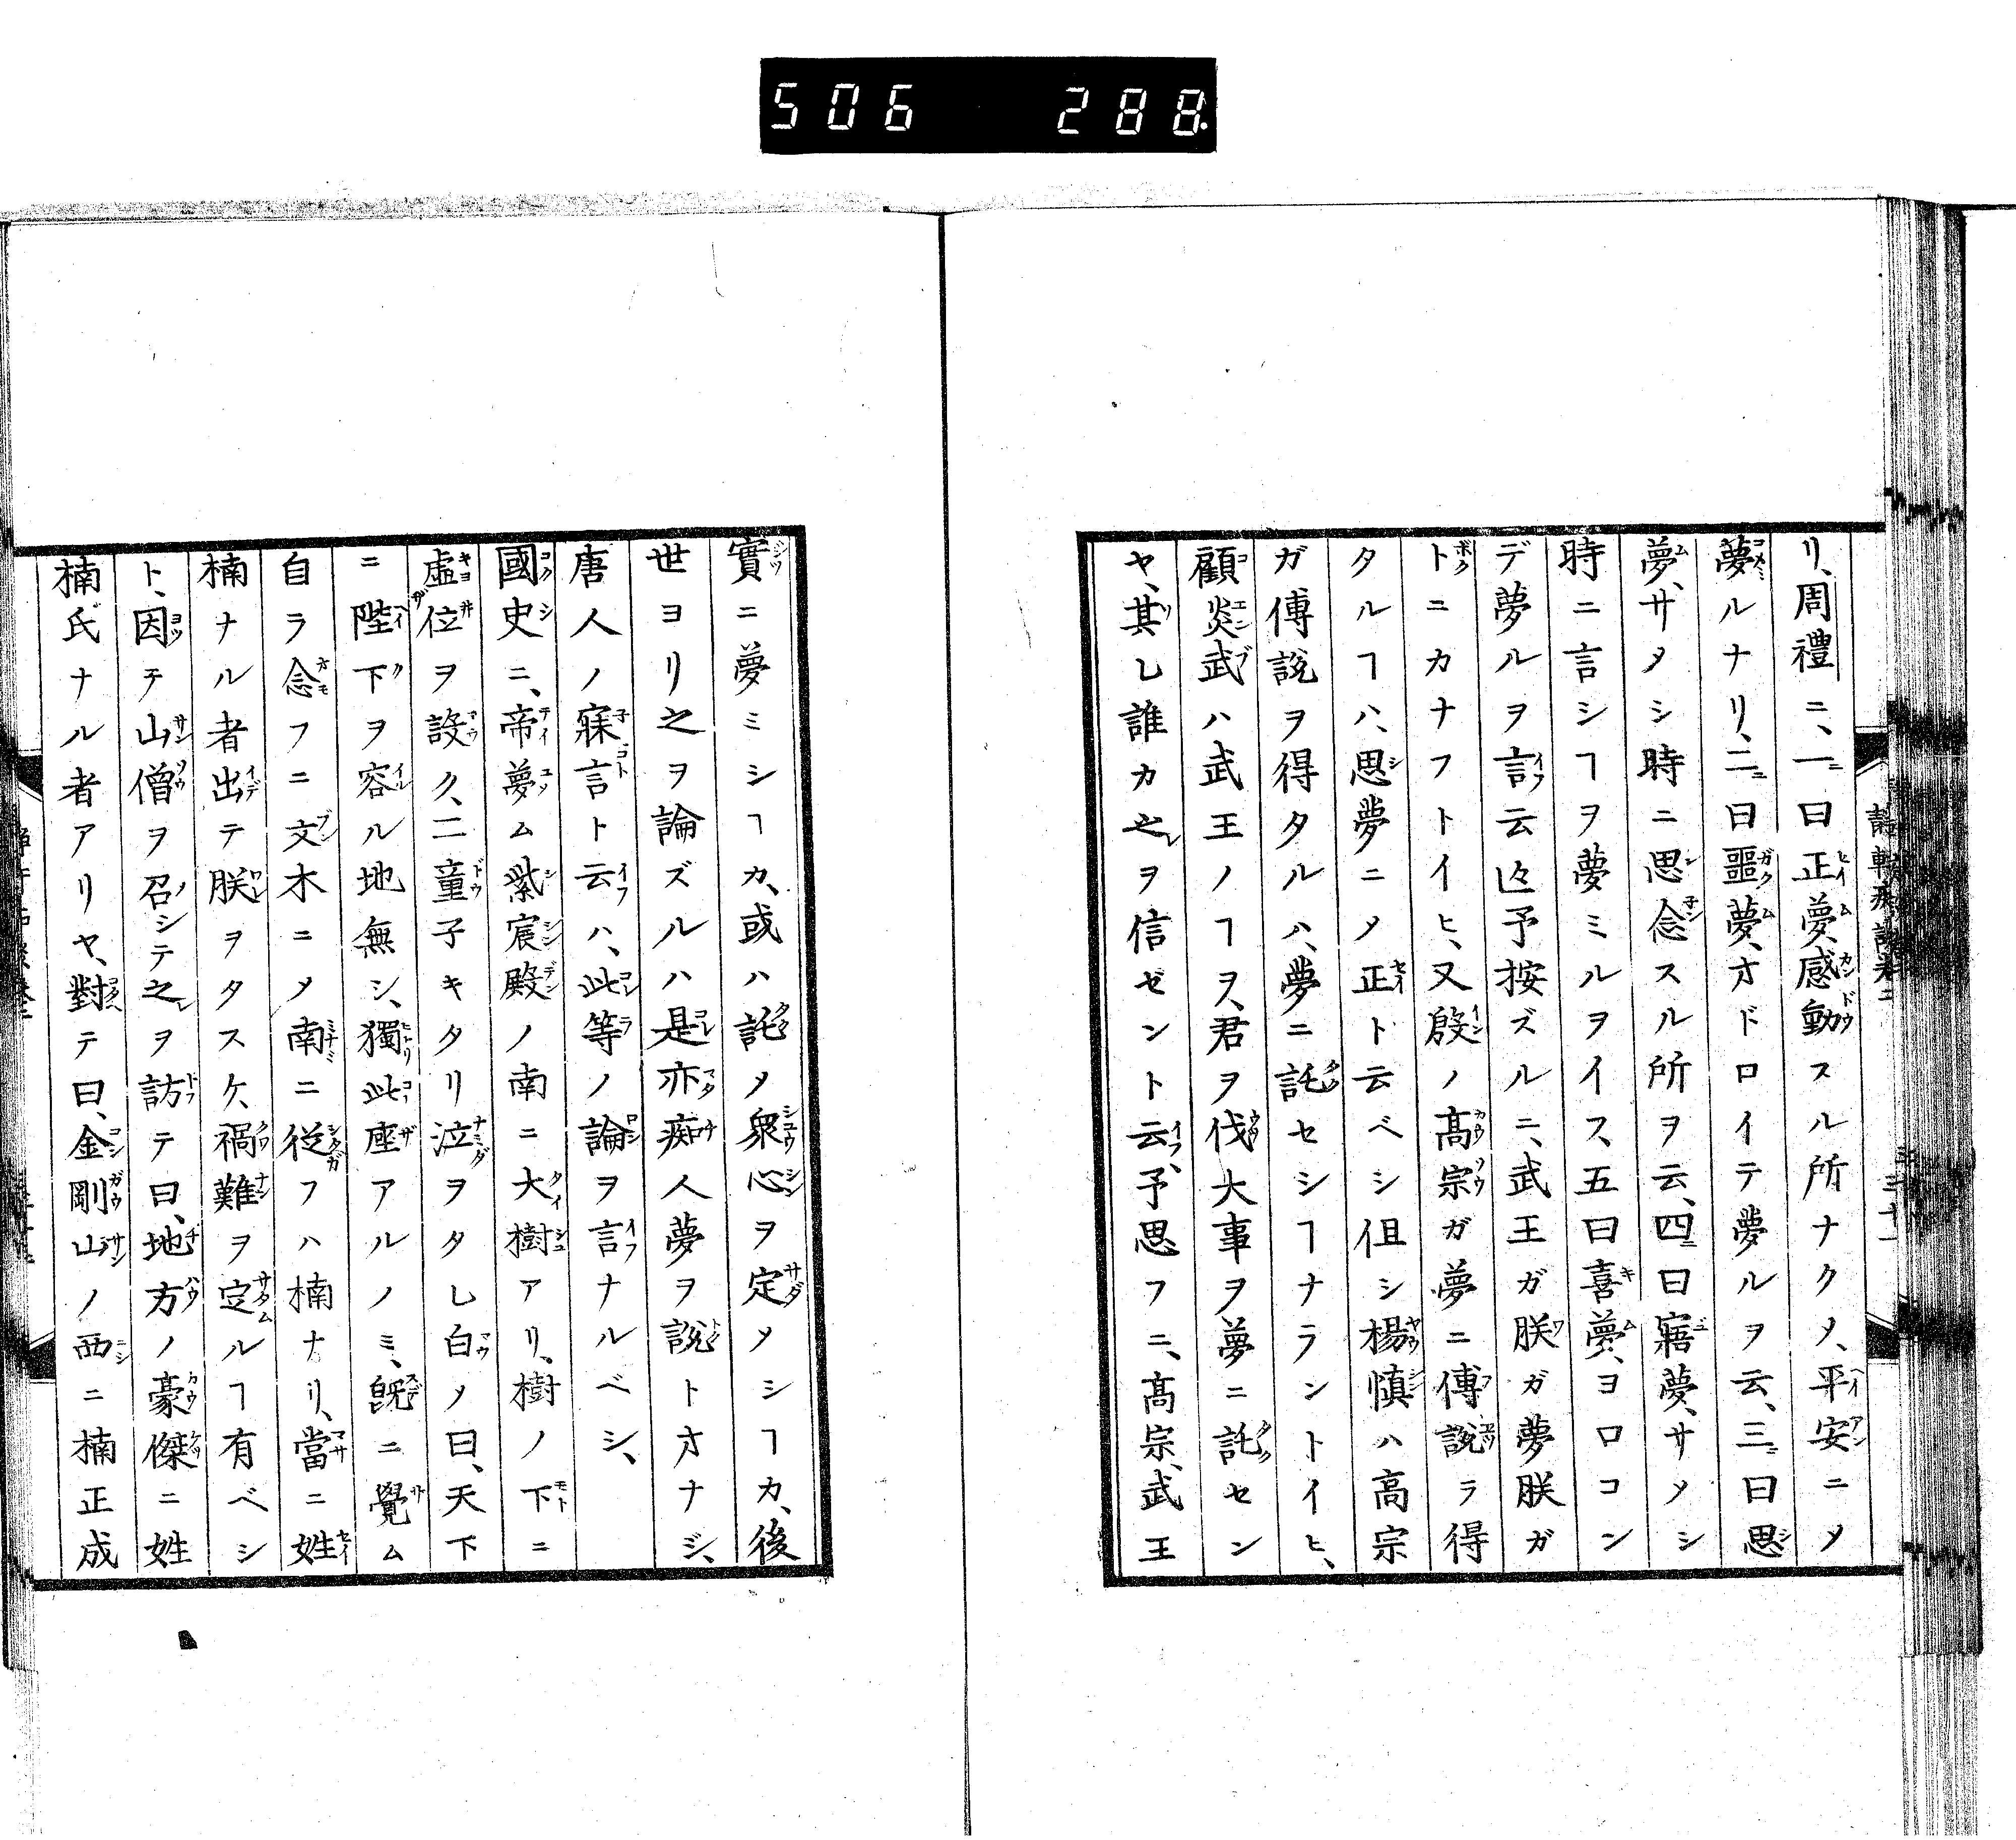 506 288
リ、周禮ニ、一曰正夢、感動スル所ナクメ、平安ニメ
夢ルナリ、二曰噩夢、オドロイテ夢ルヲ云、三曰思
夢、サメシ時ニ思念スル所ヲ云、四曰寤夢、サメシ
時ニ言シヿヲ夢ミルヲイス、五曰喜夢、ヨロコン
デ夢ルヲ言云〻予按ズルニ、武王ガ朕ガ夢朕ガ
トニカナフトイヒ、又殷ノ髙宗ガ夢ニ傅説ラ得
タルヿハ、思夢ニメ正ト云ベシ但シ楊慎ハ高宗
ガ傅説ヲ得タルハ、夢ニ託セシヿナラントイヒ、
顧炎武ハ武王ノヿヲ、君ヲ伐大事ヲ夢ニ託セン
ヤ、其レ誰カ之ヲ信ゼント云、予思フニ、髙宗、武王
實ニ夢ミシヿカ、或ハ託メ衆心ヲ定メシヿカ、後
世ヨリ之ヲ論ズルハ是亦痴人夢ヲ說トオナジ、
唐人ノ寐言ト云ハ、此等ノ論ヲ言ナルベシ、
國史ニ、帝夢ム紫宸殿ノ南ニ大樹アリ、樹ノ下ニ
虛位ヲ設ク、二童子キタリ泣ヲタレ白メ曰、天下
ニ陛下ヲ容ル地無シ、獨此座アルノミ、既ニ覺ム
自ラ念フニ文木ニメ南ニ従フハ楠ナリ、當ニ姓
楠ナル者出テ朕ヲタスケ、禍難ヲ定ルヿ有ベシ
ト、因テ山僧ヲ召シテ之ヲ訪テ曰、地方ノ豪傑ニ姓
楠氏ナル者アリヤ、對テ曰、金剛山ノ西ニ楠正成